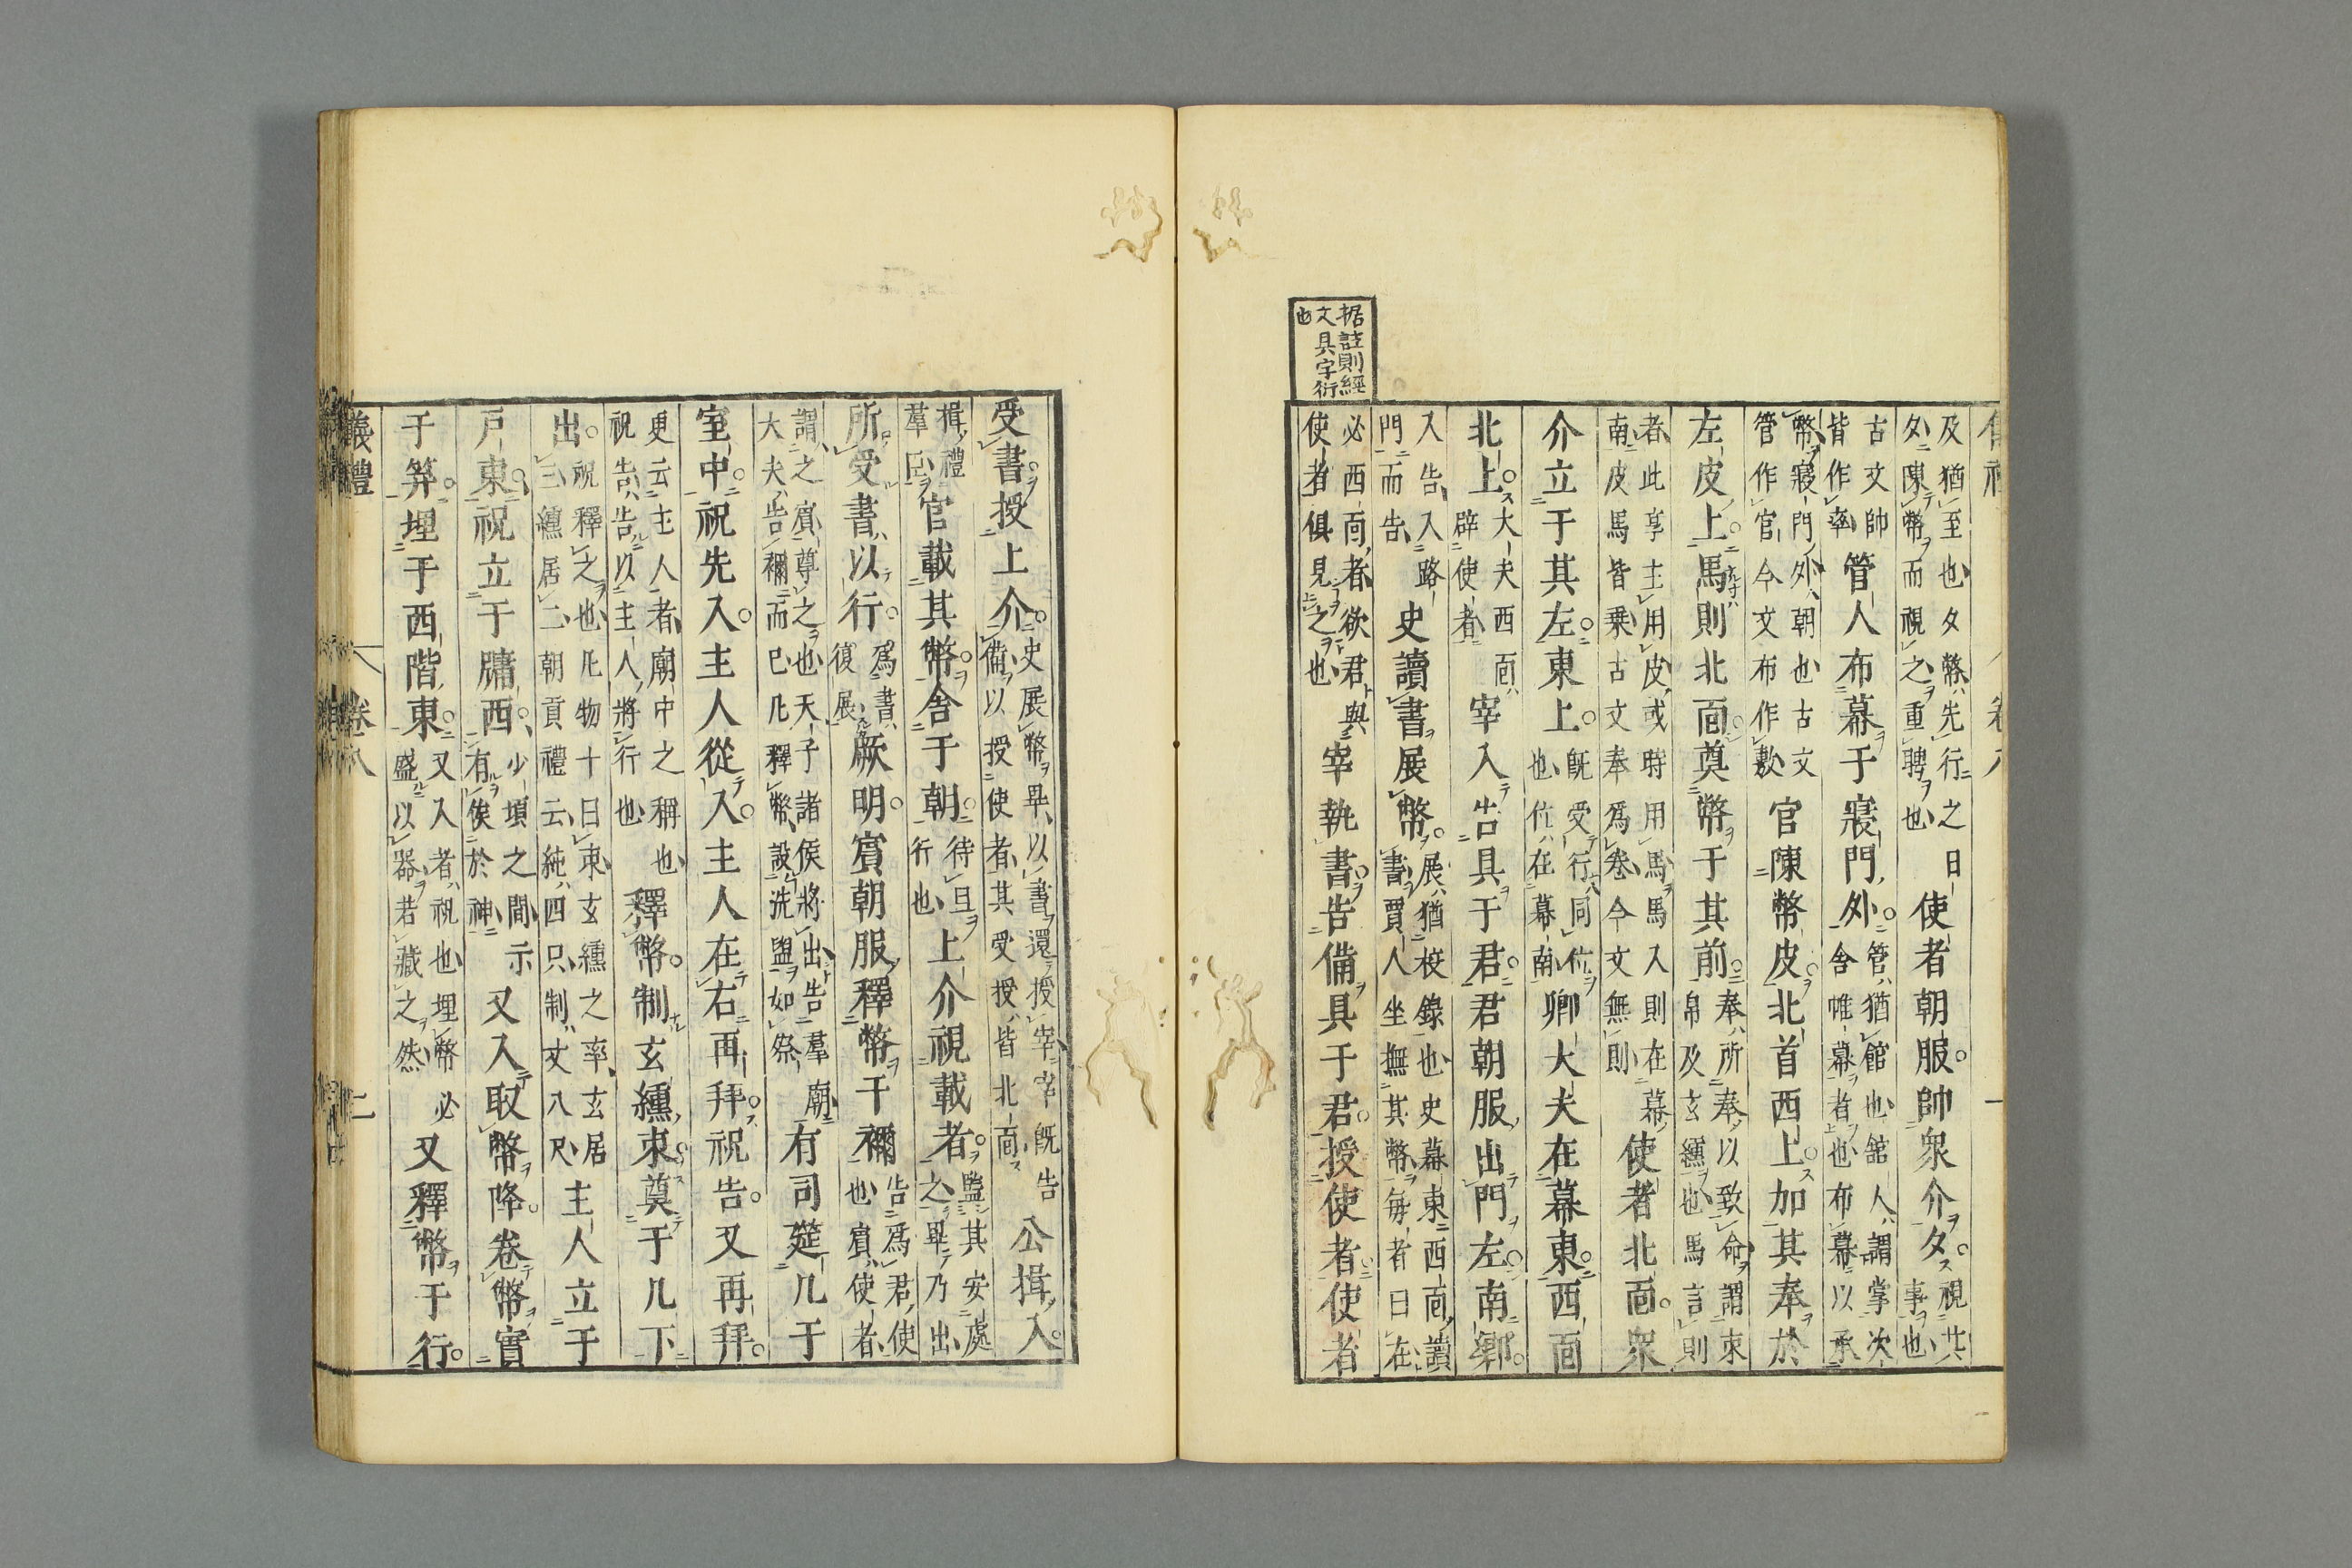 及猶至也夕幣先行之日外陳幣而視之重聘也使者朝服。帥眾介夕。視其事也
古文帥皆作率管人布幕于寢門外。管猶館也館人謂掌次舍帷幕者也布幕以承
幣寢門外朝也古文管作官今文布作敷官陳幣皮。北首西上。加其奉於
左皮上。馬則北面。奠幣于其前。奉所奉以致命謂束帛及玄纁也馬言則
者此享主用皮或時用馬馬入則在幕南皮馬皆乗古文奉爲卷今文無則使者北面。眾
介立于其左。東上。既受行同位也位在幕南卿大夫在幕東。西面
北上。大夫西面辟使者宰入告具于君。君朝服出門左。南鄉。
入告入路門而告史讀書展幣。展猶校錄也史幕東西面讀書賈人坐撫其幣每者曰在
据註則經文具字衍也
必西面者欲君與使者俱見之也宰執書。告備具于君。授使者。使者
受書。授上介。史展幣畢以書還授宰宰既告備以授使者其受授皆北面公揖入。
揖禮羣臣官載其幣。舍于朝。待旦行也上介視載者。監其安處之畢乃出
所受書以行。爲書復展厥明。賓朝服釋幣于禰告爲君使也賓使者
謂之賓尊之也天子諸侯將出告羣廟大夫告禰而已凡釋幣設洗盥如祭有司筵几于
室中。祝先入。主人從入。主人在右再拜。祝告。又再拜。
更云主人者廟中之稱也祝告告以主人將行也釋幣。制玄纁束。奠于几下
出。祝釋之也凡物十曰束玄纁之率玄居三纁居二朝貢禮云純四只制丈八尺主人立于
戶東。祝立于牖西。少頃之間示有俟於神又入取幣降。卷幣實
于笲。埋于西階東。又入者祝也埋幣必盛以器若藏之然又釋幣于行。
儀禮 卷八 二